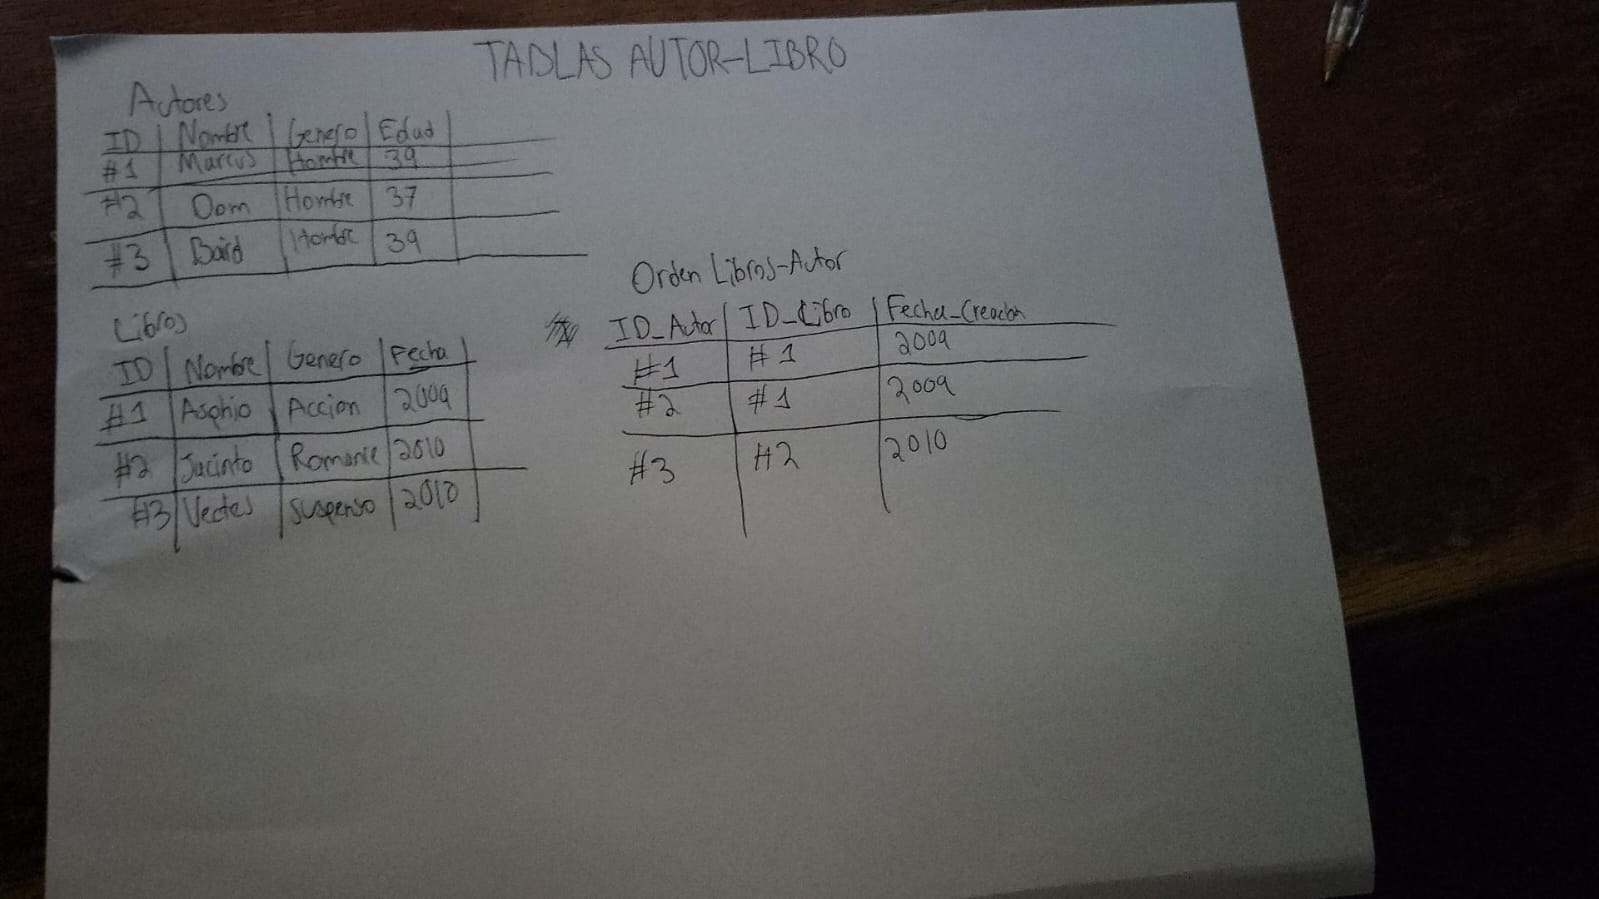 TABLAS AUTOR-LIBRO
Autores
ID Nombre Genero Edad
#1 Marcus Hombre 39
#2 Dom Hombre 37
#3 Baird Hombre 39
Libros
ID Nombre Genero Fecha
#1 Asphio Accion 2009
#2 Jacinto Romance 2010
#3 Vectes suspenso 2010
Orden Libros-Autor
ID_Autor ID_Libro Fecha_Creacion
#1 #1 2009
#2 #1 2009
#3 #2 2010